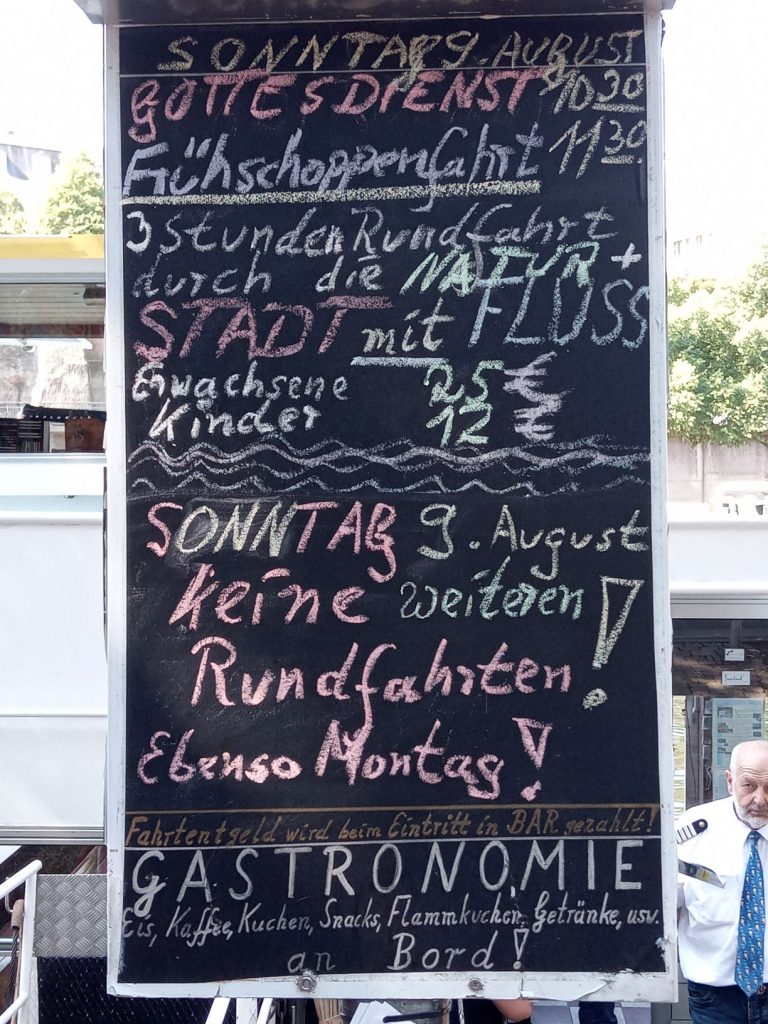 SONNTAG 9. AUGUST
GOTTESDIENST 10 30
Frühschoppenfahrt 11 30
3 Stunden Rundfahrt
durch die NATUR +
STADT mit FLUSS
Erwachsene 25 €
Kinder 12 €
SONNTAG 9. August
keine weiteren !
Rundfahrten
Ebenso Montag!
Fahrtentgeld wird beim Eintritt in BAR gezahlt!
GASTRONOMIE
Eis, Kaffee, Kuchen, Snacks, Flammkuchen, Getränke, usw.
an Bord!